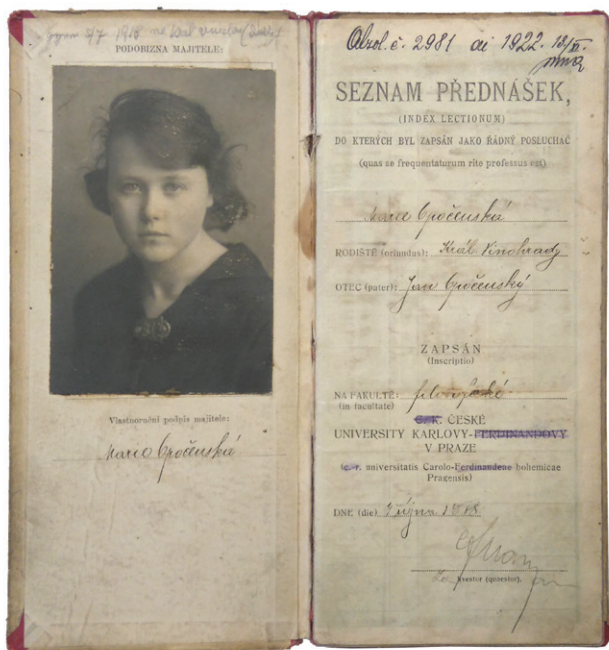 PODOBIZNA MAJITELE:
Vlastnoruční podpis majitele:
Marie Opočenská
Absol. č. 2981 ai 1922.
SEZNAM PŘEDNÁŠEK,
(INDEX LECTIONUM)
DO KTERÝCH BYL ZAPSÁN JAKO ŘÁDNÝ POSLUCHAČ
(quas se frequentaturum rite professus est)
Marie Opočenská
RODIŠTĚ (oriundus): Král. Vinohrady
OTEC (pater): Jan Opočenský
ZAPSÁN
(Inscriptio)
NA FAKULTĚ: filosofické
(in facultate)
C. K. ČESKÉ
UNIVERSITY KARLOVY-FERDINANDOVY
V PRAZE
(c. r. universitatis Carolo-Ferdinandeae bohemicae
Pragensis)
DNE (die) října 1918
kvestor (quaestor).